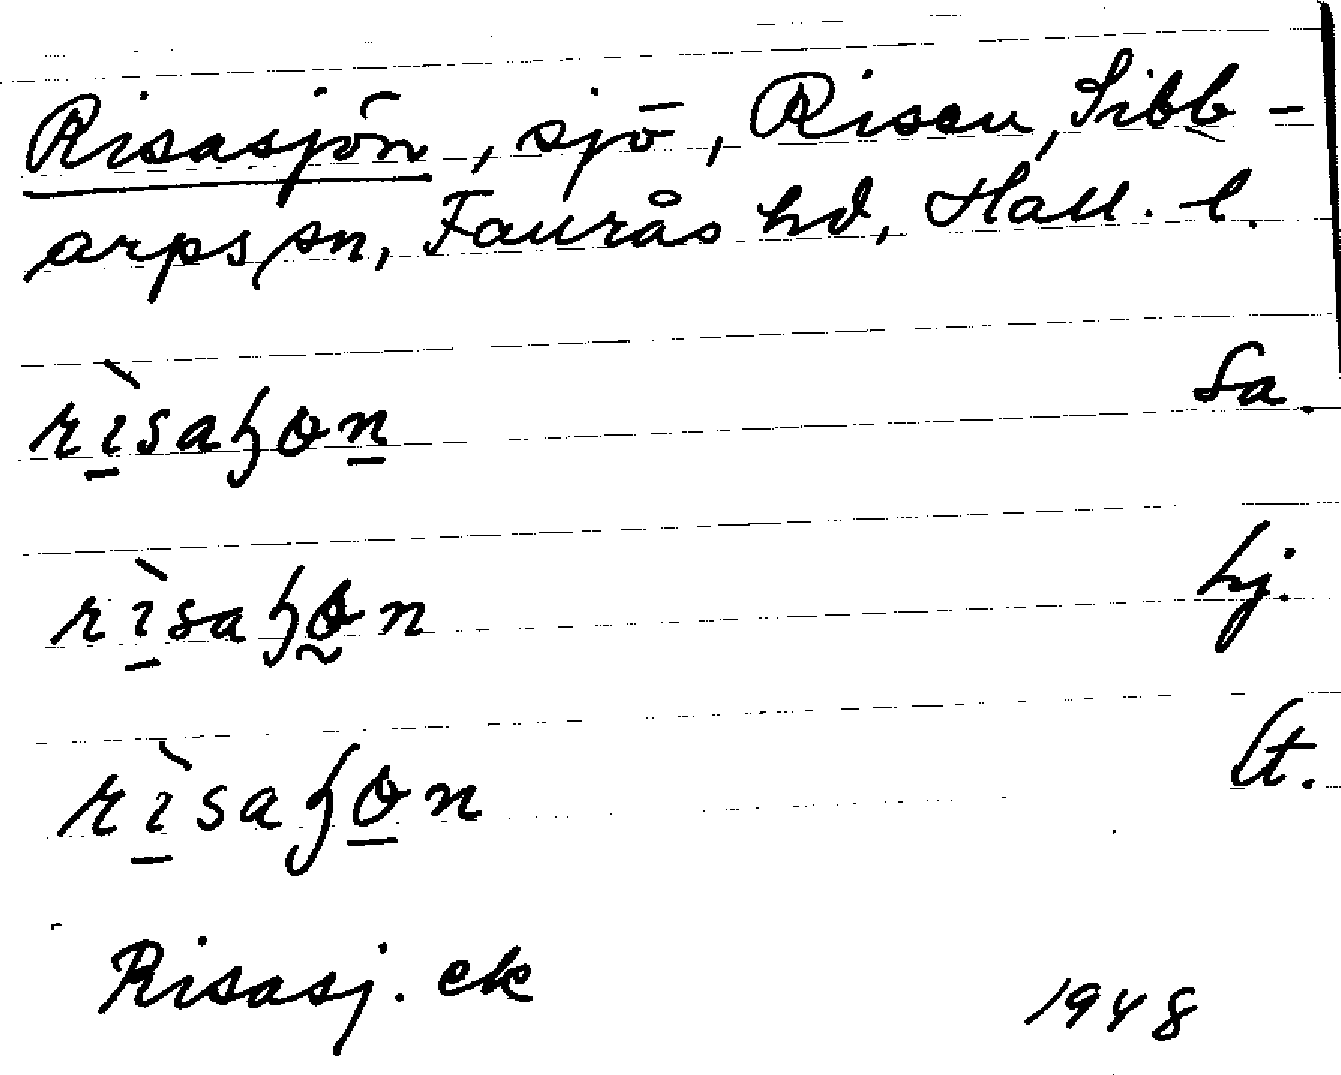 Risasjön, sjö, Risen, Sibb-
arps sn, Faurås hd, Hall. l.
rìsaɧɵn Sa.
rìsaɧɵn hj.
rìsaɧɵn lt.
Risasj. ek
1948